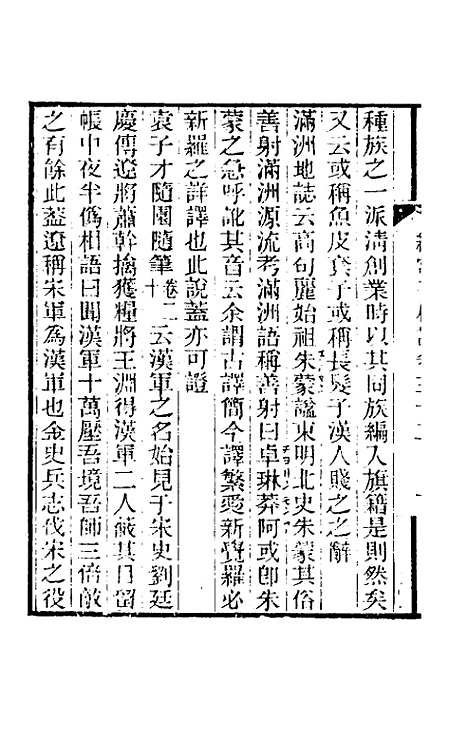 種族之一派淸創業時以其同族編入旗籍是則然矣
又云或稱魚皮㺚子或稱長髮子漢人賤之之辭
滿洲地誌云高句麗始祖朱蒙諡東明北史朱蒙其俗
善射滿洲源流考滿洲語稱善射曰卓琳莽阿或卽朱
蒙之急呼訛其音云余謂古譯簡今譯繁愛新覺羅必
新羅之詳譯也此說蓋亦可證
袁子才隨園隨筆卷二十云漢軍之名始見于宋史劉廷
慶傳遼將蕭幹擒獲糧將王淵得漢軍二人蔽其目留
帳中夜半僞相語曰聞漢軍十萬壓吾境吾師三倍敵
之有餘此蓋遼稱宋軍爲漢軍也金史兵志伐宋之役